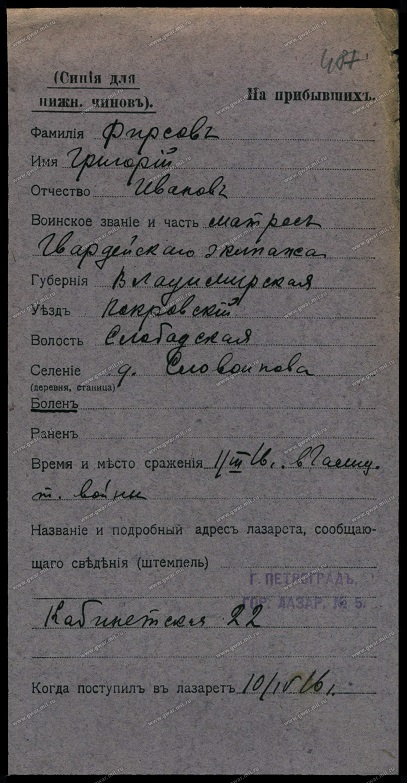 487
(Синія для
нижн. чиновъ).
На прибывшихъ.
Фамилія Фирсовъ
Имя Григорій
Отчество Ивановъ
Воинское званіе и часть матросъ
Гвардейскаго экипажа
Губернія Владимирская
Уѣздъ Покровскій
Волость Слободская
Селеніе д.
(деревня, станица)
Боленъ
Раненъ
Время и мѣсто сраженія 11/III 16 г. в
т. войны
Названіе и подробный адресъ лазарета, сообщаю-
щаго свѣдѣнія (штемпель)
Г. ПЕТРОГРАДЪ.
ГОР. ЛАЗАР. № 5.
Кабинетская 22
Когда поступилъ въ лазаретъ 10/IV 16 г.